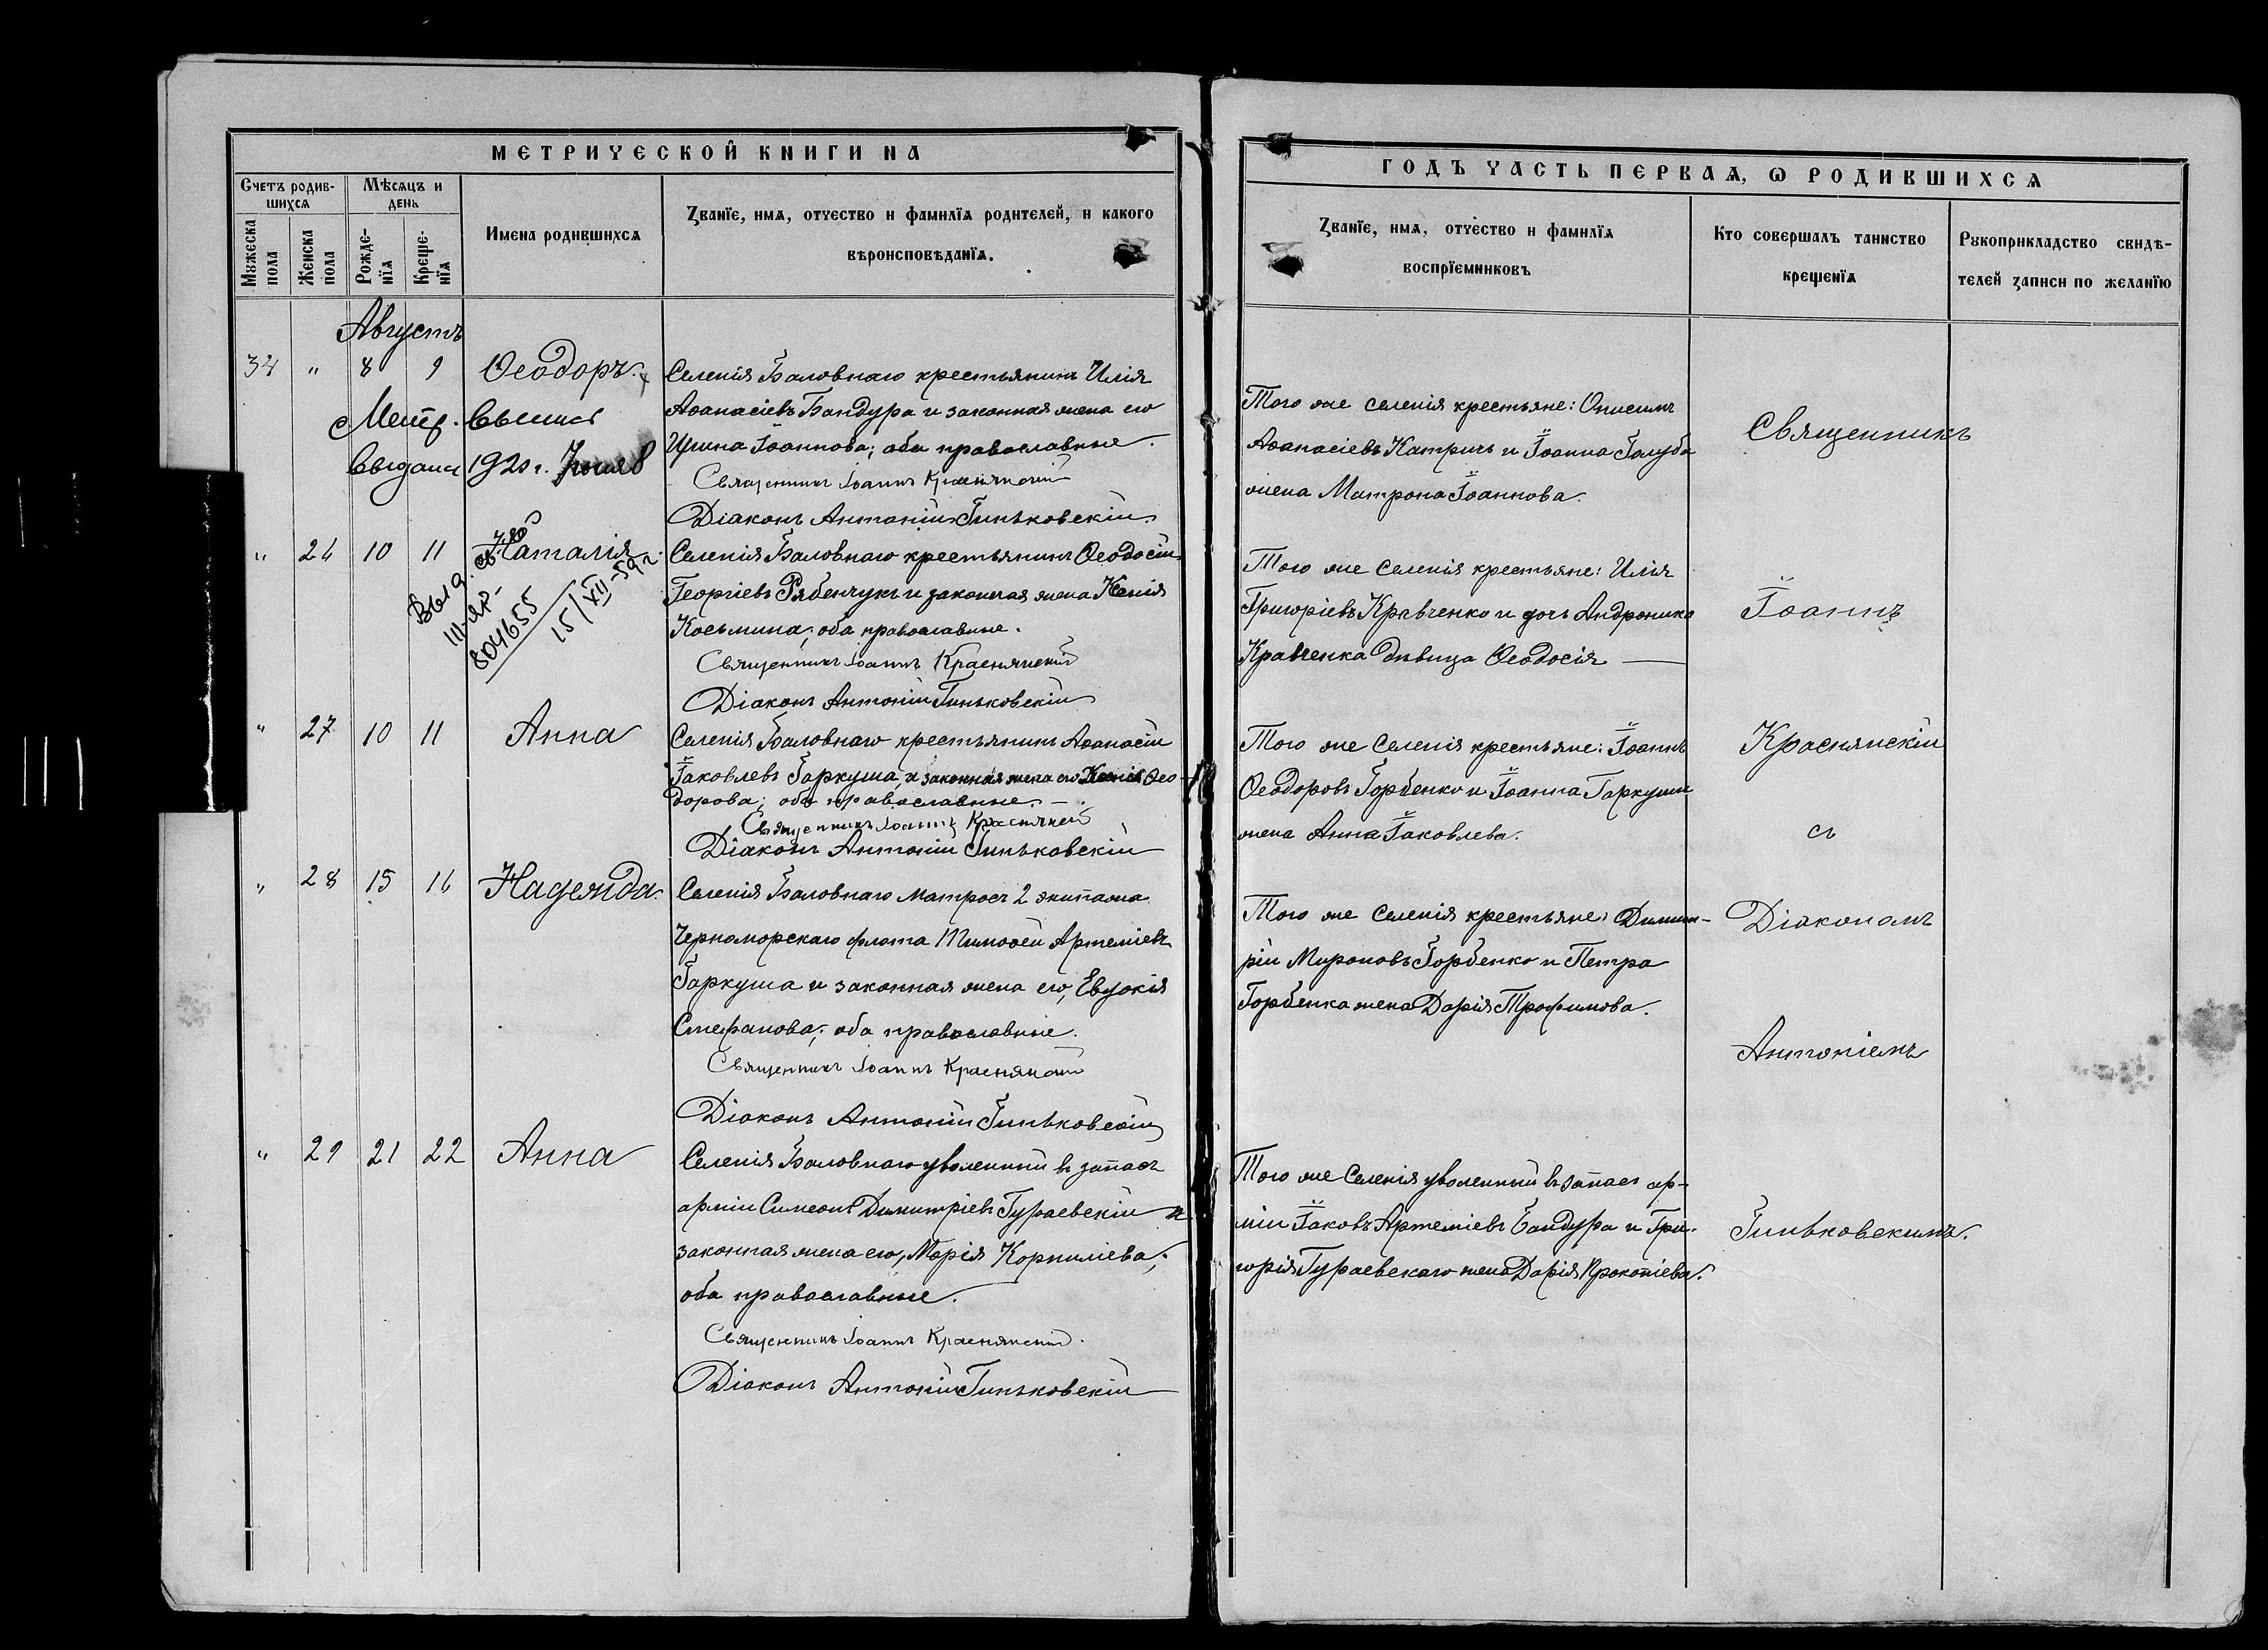 МЕТРИЧЕСКОЙ КНИГИ НА
Счетъ родив-
шихся
Мѣсяцъ и
день
Мужеска
пола
Женска
пола
Рожде-
нїя
Креще-
нїя
Имена родившихся
Званїе, имя, отчество и фамилїя родителей, и какого
вѣроисповѣданїя.
Августъ
34 " 8 9 Ѳеодоръ.
Селенія Баловнаго крестьянинъ Илія
Аѳанасіевъ Бандура и законная жена его
Ирина Іоаннова; оба православные.
Священникъ Іоаннъ Краснянскій
Діаконъ Антоній Гиньковскій
Метр. Выпись
Выдана 1920 г.
" 26 10 11 Наталія.
Выд.
III-ЯР-
804655
15/XII-59 г.
Селенія Баловнаго крестьянинъ Ѳеодосій
Георгіевъ Рябенчукъ и законная жена Ксенія
Косьмина; оба православные.
Священникъ Іоаннъ Краснянскій
Діаконъ Антоній Гиньковскій
" 27 10 11 Анна
Селенія Баловнаго крестьянинъ Аѳанасій
Іаковлевъ Гаркуша, и законная жена его Ксенія Ѳео-
дорова; оба православные. –
Священникъ Іоаннъ Краснянскій
Діаконъ Антоній Гиньковскій
" 28 15 16 Надежда.
Селенія Баловнаго матросъ 2 экипажа
Черноморскаго флота Тимоѳей Артеміевъ
Гаркуша и законная жена его, Евдокія
Стефанова; оба православные.
Священникъ Іоаннъ Краснянскій
Діаконъ Антоній Гиньковскій
" 29 21 22 Анна
Селенія Баловнаго уволенный въ запасъ
арміи Симеонъ Димитріевъ Гураевскій и
законная жена его, Марія Корниліева;
оба православные.
Священникъ Іоаннъ Краснянскій.
Діаконъ Антоній Гиньковскій
ГОДЪ ЧАСТЬ ПЕРВАЯ, Ѡ РОДИВШИХСЯ
Званїе, имя, отчество и фамилїя
воспрїемниковъ
Кто совершалъ таинство
крещенїя
Рукоприкладство свидѣ-
телей записи по желанїю
Того же селенія крестьяне: Онисимъ
Аѳанасіевъ Катричъ и Іоанна Голуба
жена Матрона Іоаннова.
Того же селенія крестьяне: Илія
Григоріевъ Кравченко и дочь Андроника
Кравченка дѣвица Ѳеодосія
Того же селенія крестьяне: Іоаннъ
Ѳеодоровъ Горбенко и Іоанна Гаркуши
жена Анна Іаковлева.
Того же селенія крестьяне: Димит-
рій Мироновъ Горбенко и Петра
Горбенка жена Дарія Трофимова.
Того же селенія уволенный въ запасъ ар-
міи Іаковъ Артеміевъ Бандура и Гри-
горія Гураевскаго жена Дарія Прокопіева.
Священникъ
Іоаннъ
Краснянскій
съ
Діакономъ
Антоніемъ
Гиньковскимъ.